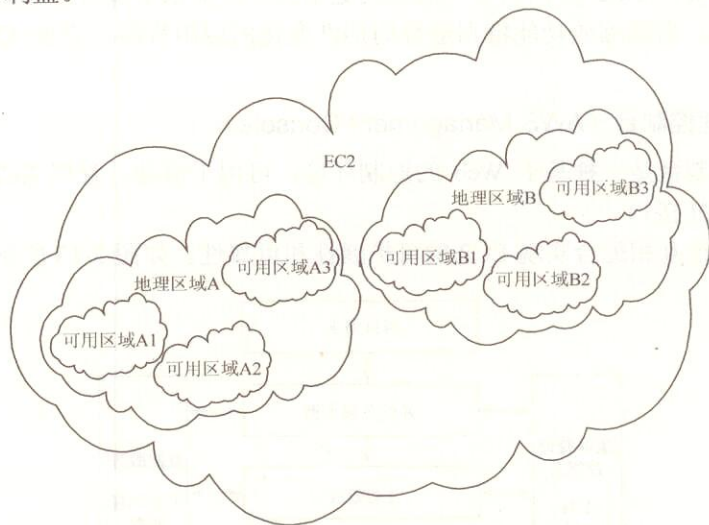 EC2
地理区域A
可用区域A1
可用区域A2
可用区域A3
地理区域B
可用区域B1
可用区域B2
可用区域B3